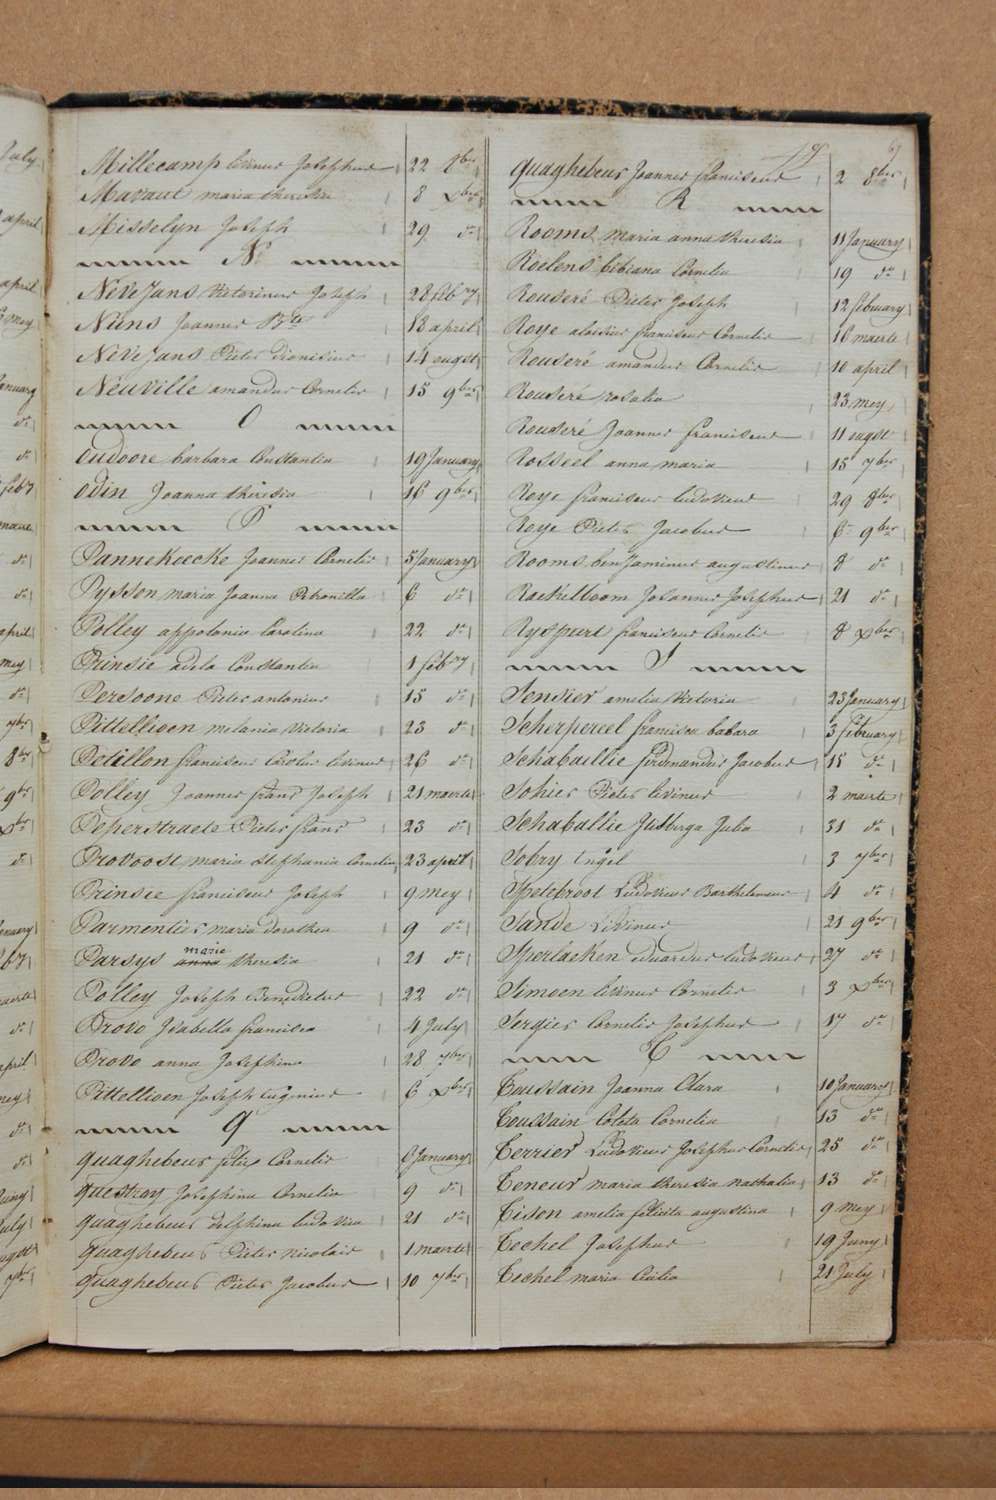 Millecamp livinus Josephus 22 8bre
Mavaut maria theresia 8 Xbre
Misselyn Joseph 29 do
N
NeveJans victorinus Joseph 28 feb ry
Nuns Joannes Bte 13 april
NeveJans Pieter dionisius 14 augst
Neuville amandus Cornelis 15 9bre
O
Oudoore barbara Constantia 19 January
Odin Joanna theresia 16 9bre
P
Pannekoecke Joannes Cornelis 5 January
Pysson maria Joanna Petronilla 6 do
Polley appolonia Carolina 22 do
Prinsie Constantia 1 feb ry
Persoone Pieter antonius 15 do
Pittellioen melania victoria 23 do
Petillon franciscus Carolus livinus 26 do
Polley Joannes frans Joseph 21 maerte
Peperstraete Pieter frans 23 do
Provoost maria Stephania Cornelia 23 april
Prinsie franciscus Joseph 9 mey
Parmentier maria dorothea 9 do
marie
Parsys anna theresia 21 do
Polley Joseph Benedictus 22 do
Provo Isabella francisca 4 July
Provo anna Josephina 28 7bre
Pittellioen Joseph Eugenius 6 Xbre
Q
quaghebeur felix Cornelis 6 January
questroy Josephina Cornelia 9 do
quaghebeur delphina ludovica 21 do
quaghebeur Pieter nicolais 1 maerte
quaghebeur Pieter Jacobus 10 7bre
quaghebeur Joannes franciscus 2 8bre
R
Rooms maria anna theresia 11 January
Roelens bibiana Cornelia 19 do
Rouseré Pieter Joseph 12 february
Roye aloisius franciscus Cornelis 16 maerte
Rouseré amandus Cornelis 10 april
Rouseré rosalia 23 mey
Rouseré Joannes franciscus 11 augst
Rosseel anna maria 15 7bre
Roye franciscus ludovicus 29 8bre
Roye Pieter Jacobus 6 9bre
Rooms benJaminus augustinus 8 do
Raekelboom Joannes Josephus 21 do
Ryspeert franciscus Cornelis 8 Xbre
S
Sensier amelia victoria 23 January
Scherpereel francisca babara 3 february
Schabaillie ferdinandus Jacobus 15 do
Sohier Pieter livinus 2 maerte
Schaballie Julia 31 do
Sobry Engel 3 7bre
Spetebroot Ludovicus Bartholomeus 4 do
Sande Livinus 21 9bre
Sperlacken eduardus ludovicus 27 do
Simoen livinus Cornelis 3 Xbre
Sergier Cornelis Josephus 17 do
T
Toussain Joanna Clara 10 January
Toussain Coleta Cornelia 13 do
Terrier Ludovicus Josephus Cornelis 25 do
Teneur maria theresia nathalia 13 do
Tison amelia felicita augustina 9 mey
Techel Josephus 19 Juny
Techel maria Cicilia 21 July